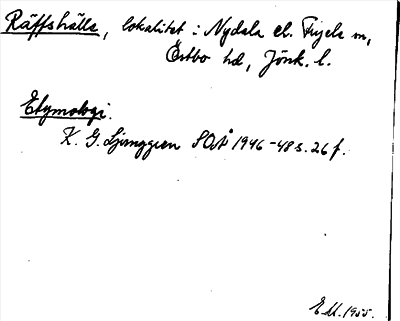 Räffshälle, lokalitet i Nydala el. Fryele sn,
Östbo hd, Jönk. l.
Etymologi.
K. G. Ljunggren SOÅ 1946-48 s. 26 f.
E M. 1955.